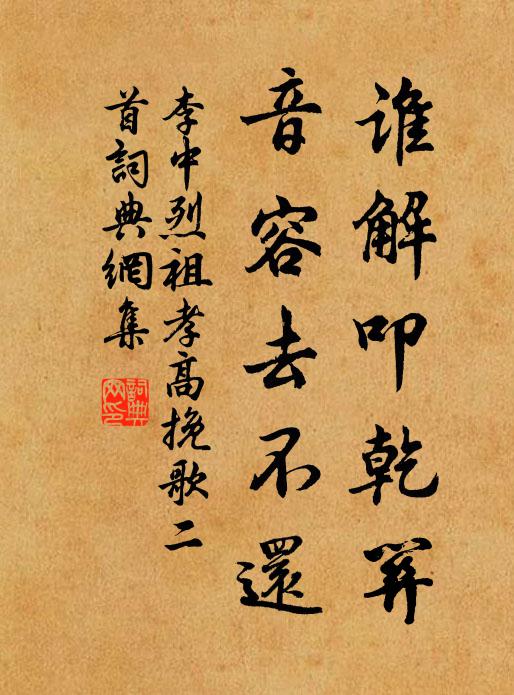 誰解叩乾
音容去不還
李中烈祖孝高挽歌二
首詞典網集
詞典
网印